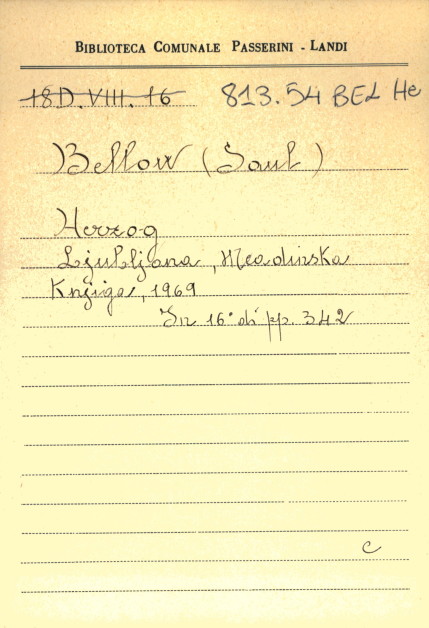 BIBLIOTECA COMUNALE PASSERINI - LANDI
18D.VIII.16 813.54 BEL He
Bellow (Saul)
Herzog
Ljubljana, Mladinska
Knjiga, 1969
In 16° di pp. 342
c